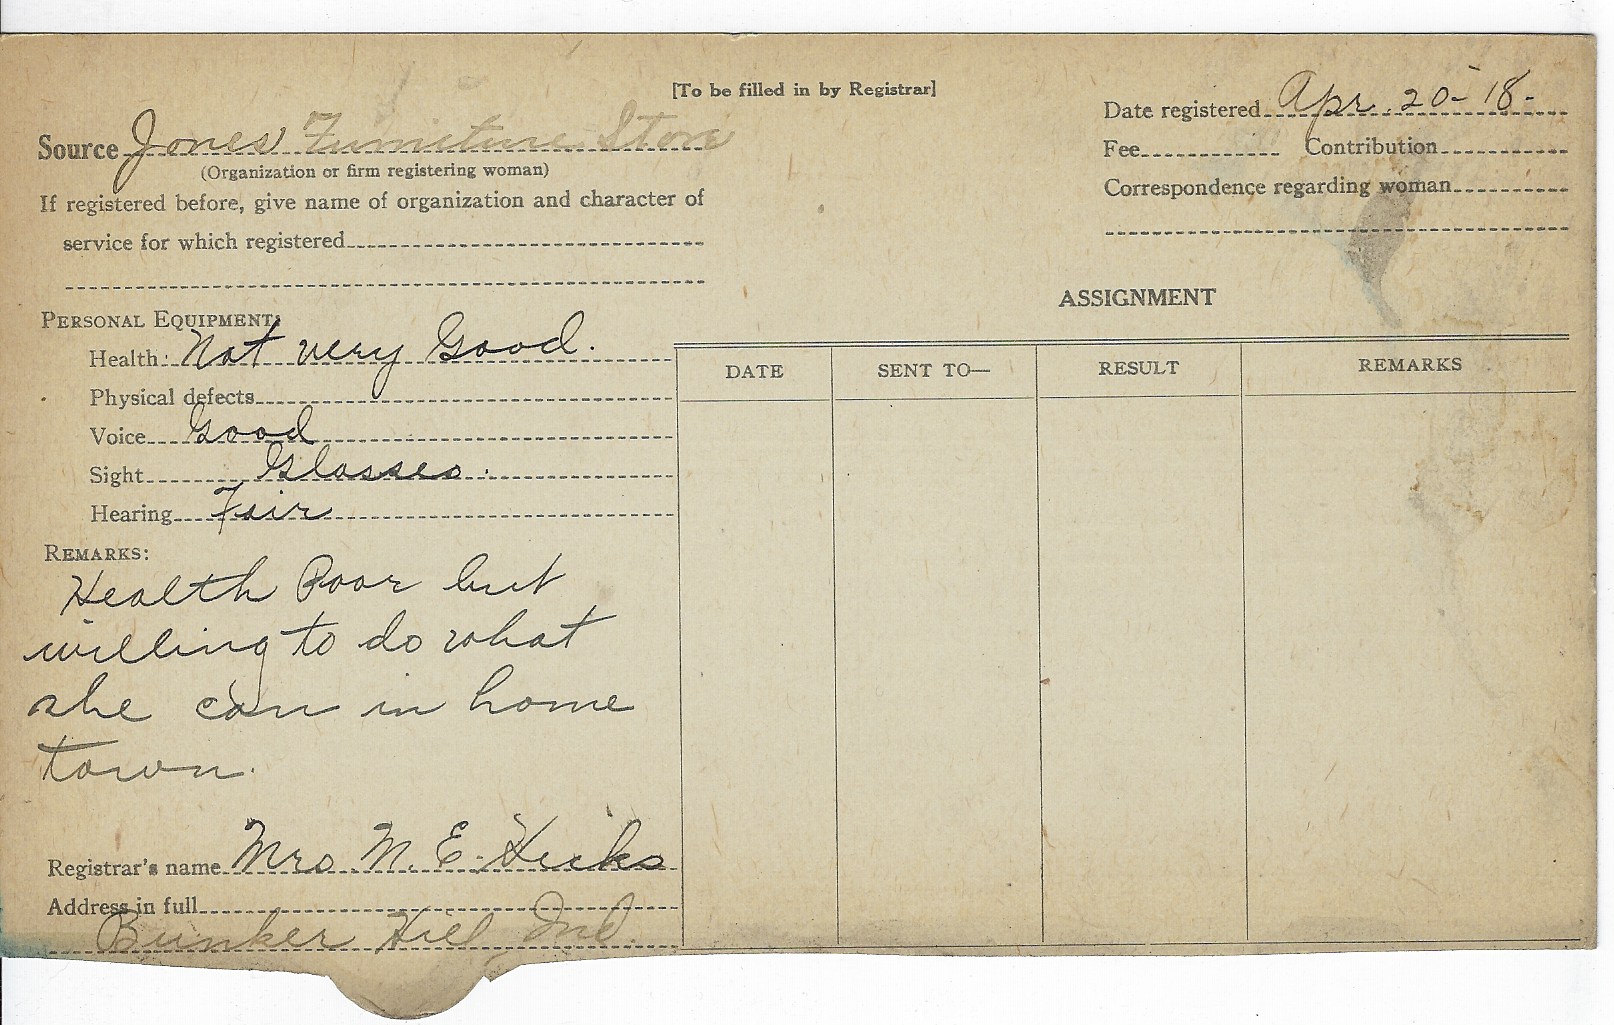 [To be filled in by Registrar]
Source Jones Furniture Store
(Organization or firm registering woman)
If registered before, give name of organization and character of
service for which registered
Date registered Apr. 20-18-
Fee Contribution
Correspondence regarding woman
PERSONAL EQUIPMENT:
Health: Not very Good.
Physical defects
Voice Good
Sight Glasses.
Hearing Fair
REMARKS:
Health Poor but
willing to do what
she can in home
town.
Registrar's name Mrs. N. E. Hicks
Address in full
Bunker Hill Ind.
ASSIGNMENT
DATE SENT TO— RESULT REMARKS